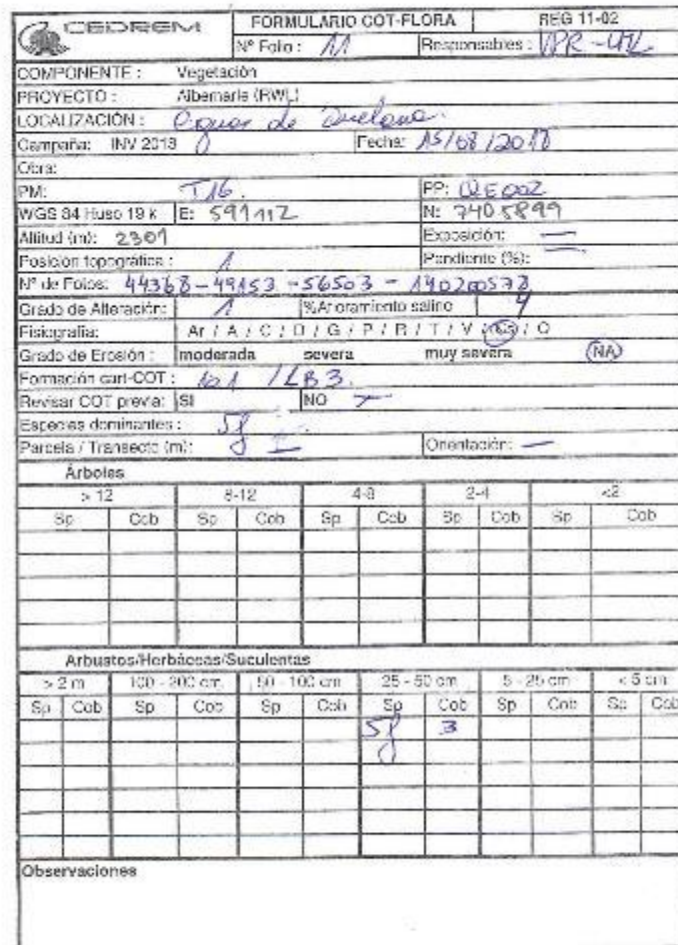 CEDREM FORMULARIO COT-FLORA REG 11-02
Nº Folio : 11 Responsables :
COMPONENTE : Vegetación
PROYECTO : Albemarle (RWL)
LOCALIZACIÓN : Aguas de Quelana
Campaña: INV 2018 Fecha: 15/08/2018
Obra:
PM: T16. PP: QE002
WGS 84 Huso 19 k E: 591112 N: 7405899
Altitud (m): 2301 Exposición: —
Posición topográfica : 1 Pendiente (%): —
Nº de Fotos: 44368-49153-56503-140200578
Grado de Alteración: 1 %Afloramiento salino 4
Fisiografía: Ar / A / C / D / G / P / R / T / V / / O
Grado de Erosión : moderada severa muy severa NA
Formación cart-COT : 101 / LB3.
Revisar COT previa: SI NO
Especies dominantes : Sf
Parcela / Transecto (m): — Orientación: —
Árboles
> 12 8-12 4-8 2-4 <2
Sp Cob Sp Cob Sp Cob Sp Cob Sp Cob
Arbustos/Herbáceas/Suculentas
> 2 m 100 - 200 cm 50 - 100 cm 25 - 50 cm 5 - 25 cm < 5 cm
Sp Cob Sp Cob Sp Cob Sp Cob Sp Cob Sp Cob
Sf 3
Observaciones